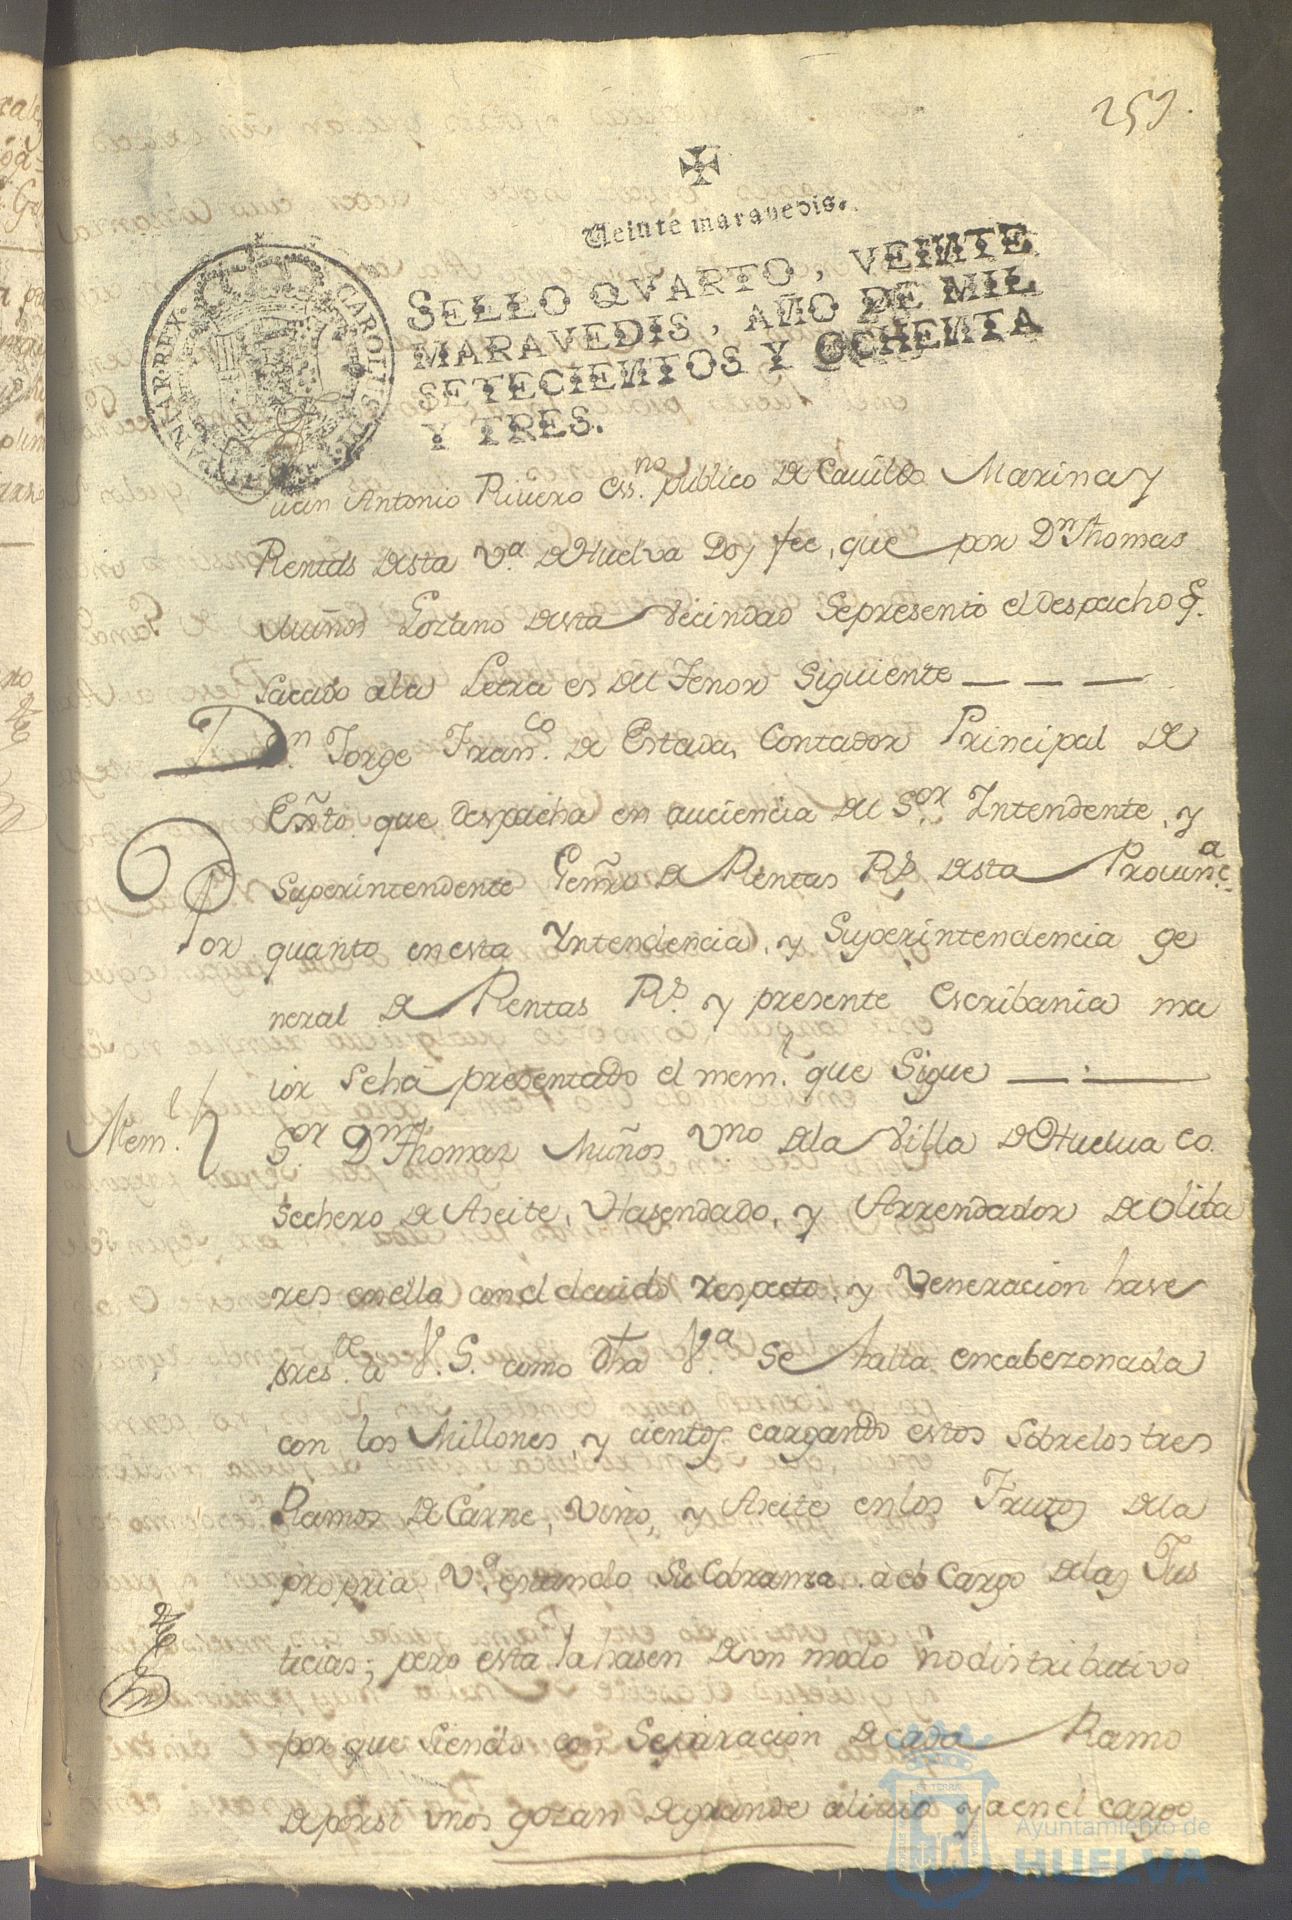 259.
Veinte maravedis.
SELLO QVARTO, VEINTE
MARAVEDIS, AÑO DE MIL
SETECIENTOS Y OCHENTA
Y TRES.
CAROLUS III
REX
Juan Antonio Rivero Ess.no publico de Cavildo Marina y
Rentas desta V.a de Huelva Doy fee, que por Dn Thomas
Muños Lozano desta Vecindad Se presento el Despacho q.e
Sacado ala Letra es del Tenor Siguiente
Dn. Jorge Fran.co de Estada, Contador Principal de
Exñto que despacha en auciencia del S.or Intendente, y
Superintendente Geñro de Rentas R.s desta Provinc.a
Por quanto en esta Yntendencia, y Superintendencia ge
neral de Rentas R.s y presente Escribania ma
ior Seha presentado el mem.l que Sigue
Mem.l S.or Dn Thomas Muños V.no dela Villa de Huelva co
sechero de Aseite, Hasendado, y Arrendador de Oliba
res en ella con el devido respecto, y Veneracion hase
pres.te a V. S. como dha V.a Se halla encabezonada
con los Millones, y cientos cargando estos Sobre los tres
Ramos de Carne, Vino, y Aseite en los Frutos dela
propria V.a estando Su Cobransa a el Cargo delas Jus
ticias; pero esta la hasen de un modo no distributivo
por que Siendo con Separacion de cada Ramo
de por si unos gozan de grande alivio y a en el cargo
Ayuntamiento de
HUELVA